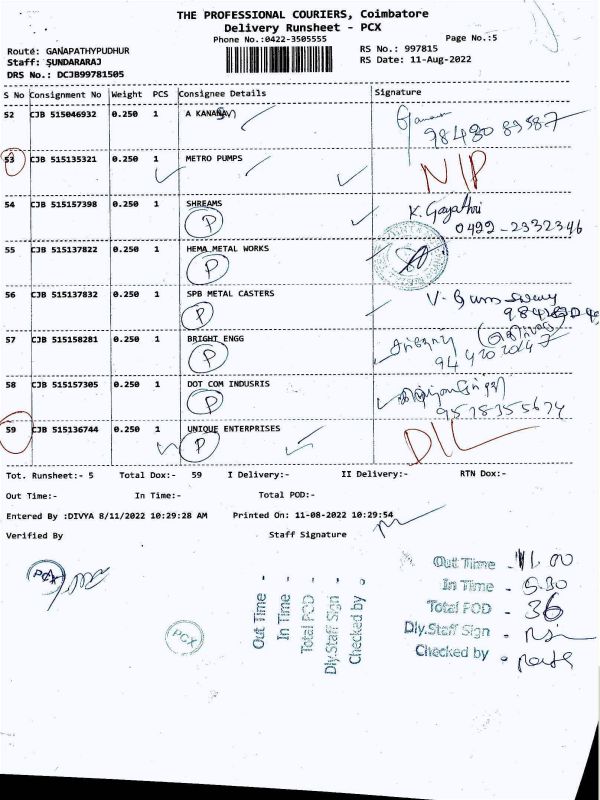 THE PROFESSIONAL COURIERS, Coimbatore
Delivery Runsheet - PCX
Phone No.:0422-3505555
Page No.:5
Route: GANAPATHYPUDHUR
RS No.: 997815
Staff: SUNDARARAJ
RS Date: 11-Aug-2022
DRS No.: DCJB99781505
S No Consignment No Weight PCS Consignee Details Signature
52 CJB 515046932 0.250 1
98480 89587
53 CJB 515135321 0.250 1 METRO PUMPS NIP
54 CJB 515157398 0.250 1 SHREAMS K. Gayathri
P 0422-2332346
55 CJB 515137822 0.250 1 HEMA METAL WORKS
P
56 CJB 515137832 0.250 1 SPB METAL CASTERS
P
57 CJB 515158281 0.250 1 BRIGHT ENGG
P 9442020247
58 CJB 515157305 0.250 1 DOT COM INDUSRIS
P 9578355674
59 CJB 515136744 0.250 1 UNIQUE ENTERPRISES
P
Tot. Runsheet:- 5 Total Dox:- 59 I Delivery:- II Delivery:- RTN Dox:-
Out Time:- In Time:- Total POD:-
Entered By :DIVYA 8/11/2022 10:29:28 AM Printed On: 11-08-2022 10:29:54
Verified By Staff Signature
PCX
PCX
Out Time -
In Time -
Total POD -
Dly.Staff Sign -
Checked by -
Out Time - 11.00
In Time - 5.30
Total POD - 36
Dly.Staff Sign -
Checked by -